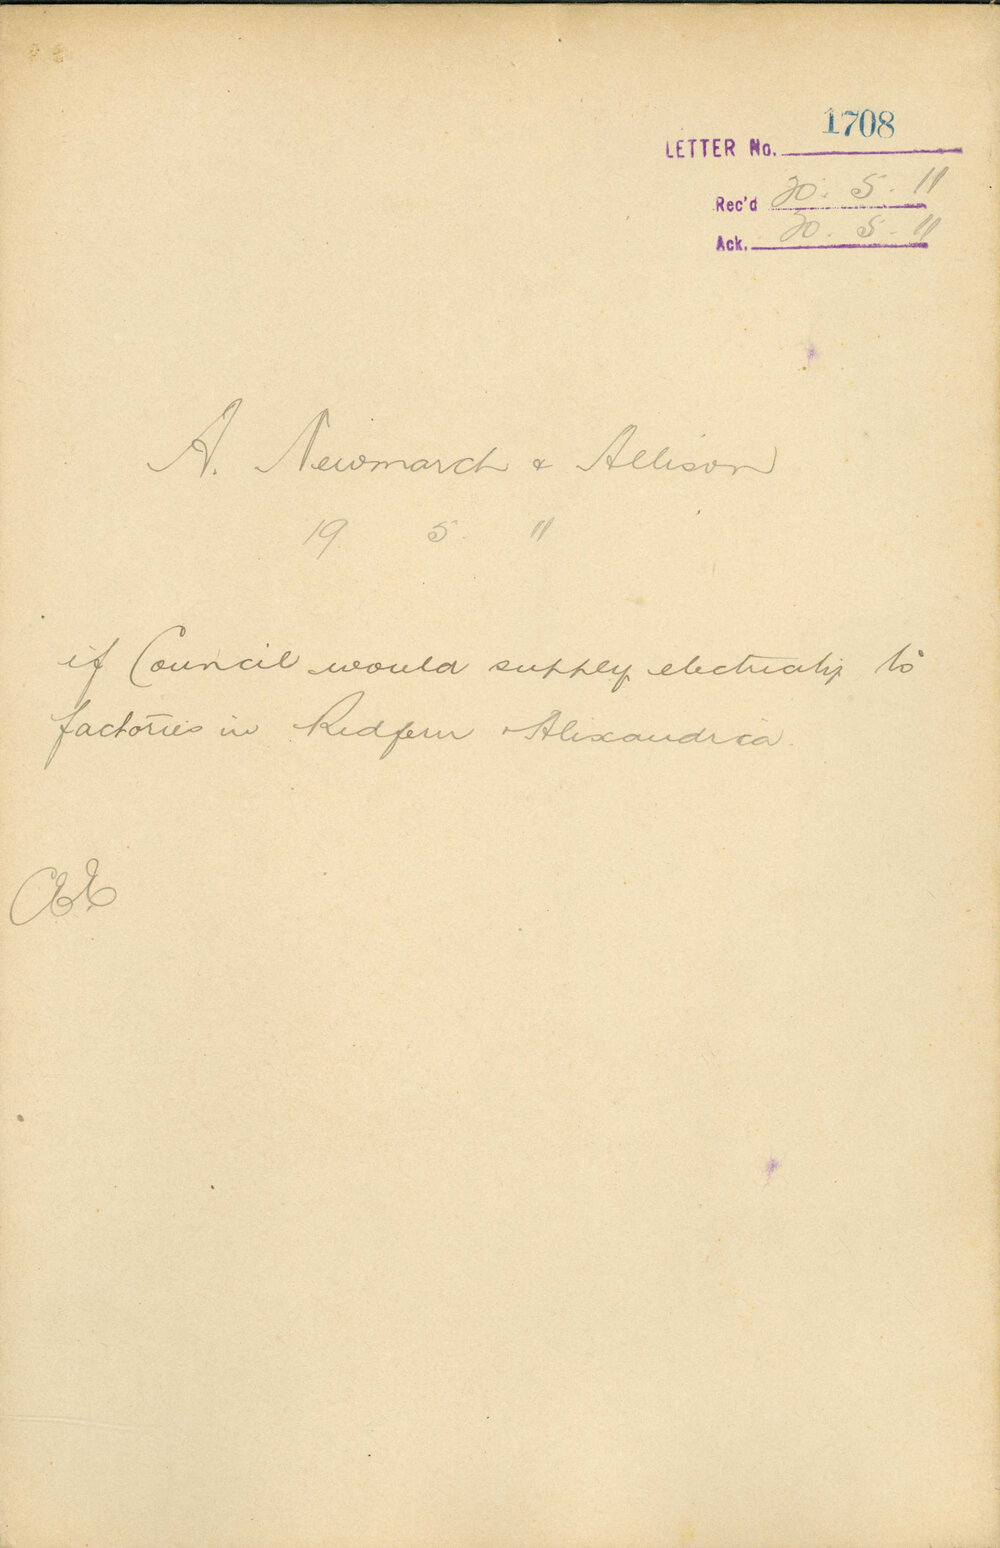 1708
LETTER No.
Rec'd 20. 5. 11
Ack. 20. 5. 11
A. Newmarch & Allison
19 5. 11
if Council would supply electricity to
factories in Redfern & Alexandria.